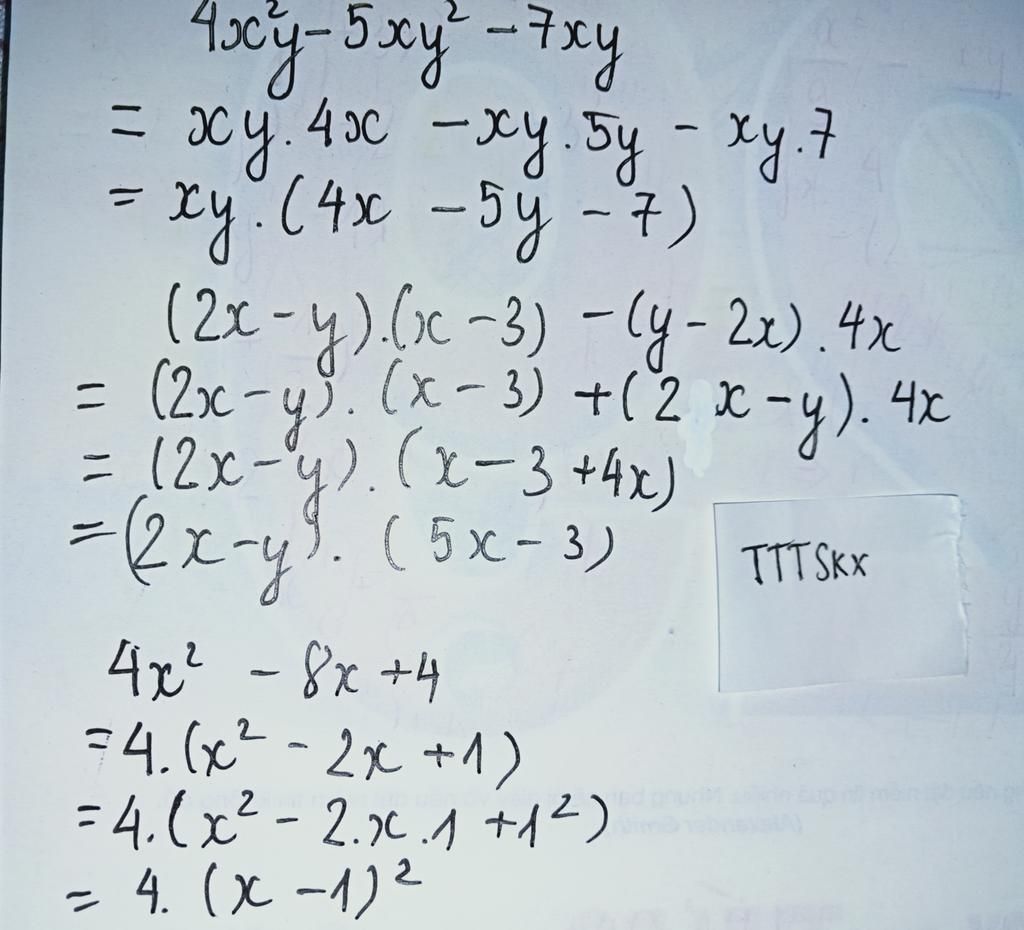 4x²y - 5xy² - 7xy
= xy. 4x - xy. 5y - xy. 7
= xy. (4x - 5y - 7)
(2x - y).(x - 3) - (y - 2x). 4x
= (2x - y). (x - 3) + (2x - y). 4x
= (2x - y). (x - 3 + 4x)
= (2x - y). (5x - 3)
TTTSkx
4x² - 8x + 4
= 4.(x² - 2x + 1)
= 4.(x² - 2.x.1 + 1²)
= 4. (x - 1)²